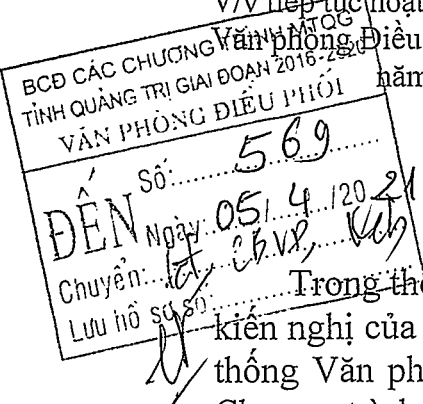 V/v tiếp tục hoạt
Văn phòng Điều
năm
BCĐ CÁC CHƯƠNG TRÌNH MTQG
TỈNH QUẢNG TRỊ GIAI ĐOẠN 2016-2020
VĂN PHÒNG ĐIỀU PHỐI
ĐẾN
Số: 569
Ngày: 05/ 4 /20 21
Chuyển: VP,
Lưu hồ sơ số:
Trong thờ
kiến nghị của
thống Văn ph